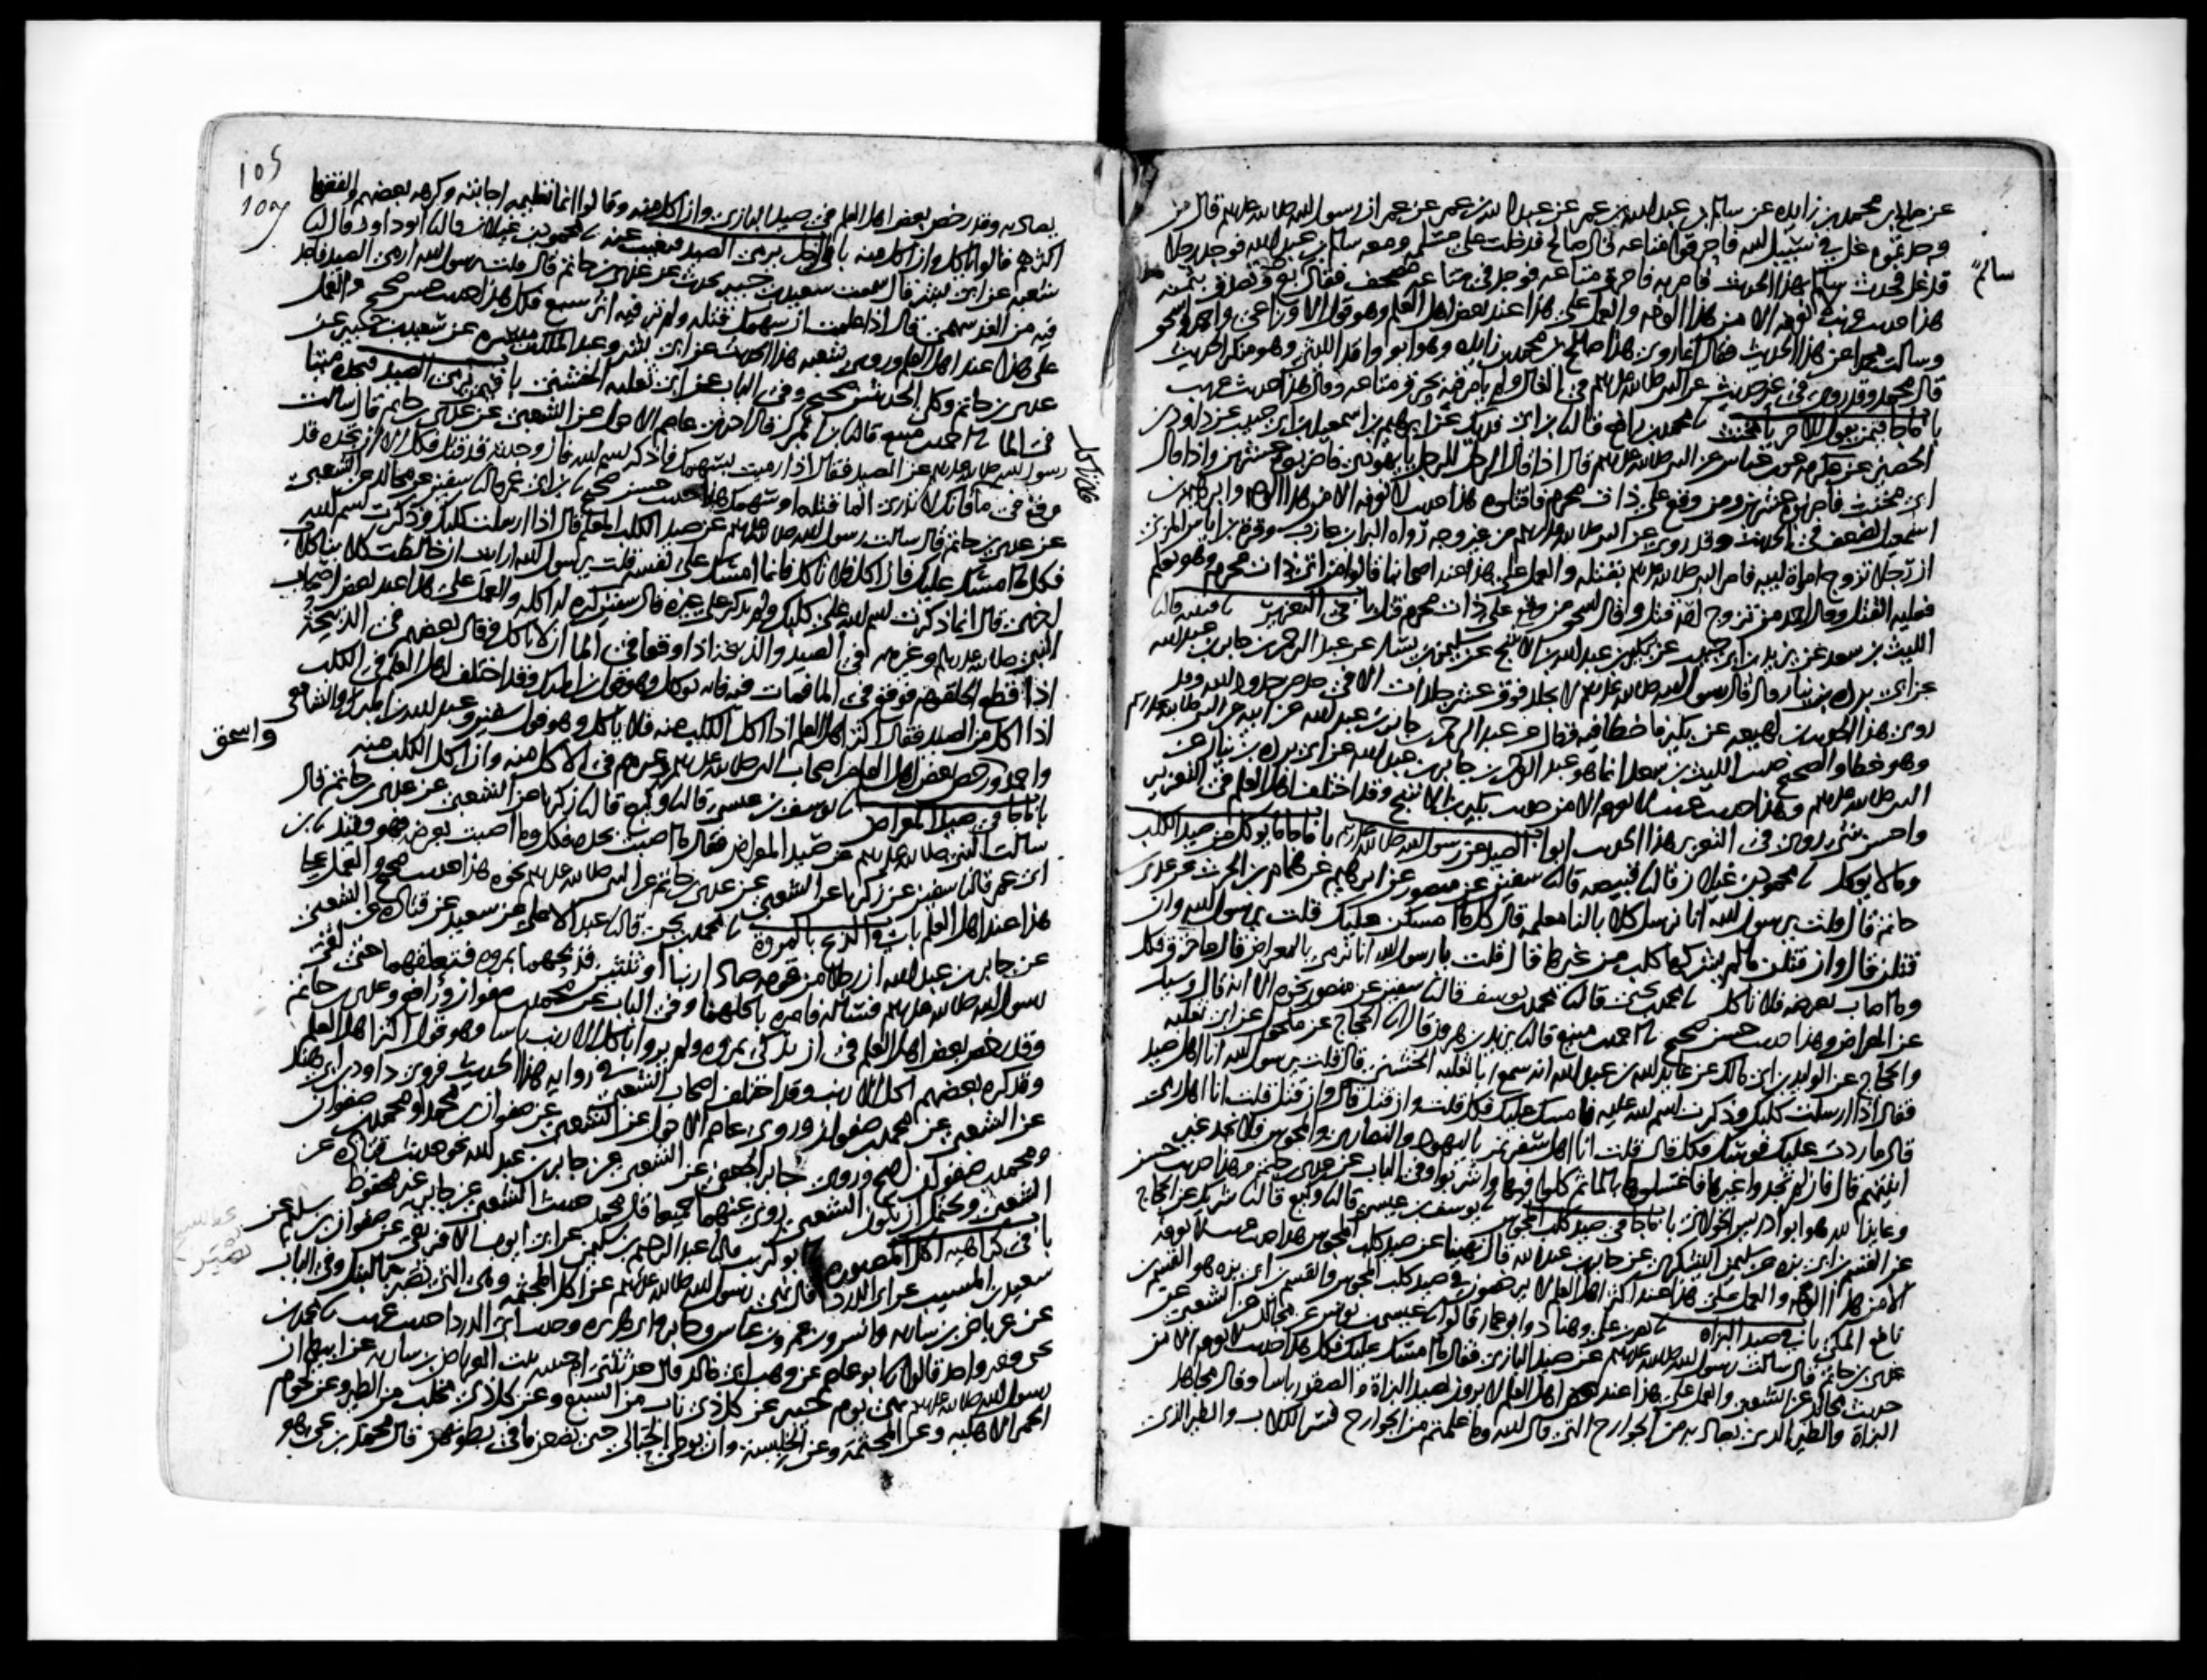 عن صالح بن محمد بن زايده عن سالم بن عبد الله بن عمر عن عبد الله بن عمر عن عمر ان رسول الله صلى الله عليه وسلم قال من
وجدتموه غل في سبيل الله فاحرقوا متاعه قال صالح فدخلت على مسلمه ومعه سالم بن عبد الله فوجد رجلا
قد غل فحدث سالم بهذا الحديث فامر به فاحرق متاعه فوجد في متاعه مصحف فقال بع وتصدق بثمنه
سالم
هذا حديث غريب لا نعرفه الا من هذا الوجه والعمل على هذا عند بعض اهل العلم وهو قول الاوزاعي واحمد واسحق
وسالت محمدا عن هذا الحديث فقال انما روى هذا صالح بن محمد بن زايده وهو ابو واقد الليثي وهو منكر الحديث
قال محمد وقد روى في غير حديث عن النبي صلى الله عليه وسلم في الغال ولم يامر فيه بحرق متاعه وقال هذا حديث غريب
باب ما جا فيمن يقول للاخر يا مخنث نا محمد بن رافع قال نا بن ابي فديك عن ابرهيم بن اسمعيل بن ابي حبيبه عن داود بن
الحصين عن عكرمه عن بن عباس عن النبي صلى الله عليه وسلم قال اذا قال الرجل للرجل يا يهودي فاضربوه عشرين واذا قال
يا مخنث فاضربوه عشرين ومن وقع على ذات محرم فاقتلوه هذا حديث لا نعرفه الا من هذا الوجه وابرهيم بن
اسمعيل يضعف في الحديث وقد روي عن النبي صلى الله عليه وسلم من غير وجه رواه البرا بن عازب وقره بن اياس المزني
ان رجلا تزوج امراة ابيه فامر النبي صلى الله عليه وسلم بقتله والعمل على هذا عند اصحابنا قالوا من اتى ذات محرم وهو يعلم
فعليه القتل وقال احمد من تزوج امه قتل وقال اسحق من وقع على ذات محرم قتل باب في التعزير نا قتيبه قال نا
الليث بن سعد عن يزيد بن ابي حبيب عن بكير بن عبد الله بن الاشج عن سليمن بن يسار عن عبد الرحمن بن جابر بن عبد الله
عن ابي بردة بن نيار قال قال رسول الله صلى الله عليه وسلم لا يجلد فوق عشر جلدات الا في حد من حدود الله وقد
روى هذا الحديث ابن لهيعه عن بكير فاخطا فيه فقال عن عبد الرحمن بن جابر بن عبد الله عن ابيه عن النبي صلى الله عليه وسلم
وهو خطا والصحيح حديث الليث بن سعد انما هو عبد الرحمن بن جابر بن عبد الله عن ابي بردة بن نيار عن
النبي صلى الله عليه وسلم وهذا حديث غريب لا نعرفه الا من حديث بكير بن الاشج وقد اختلف اهل العلم في التعزير
واحسن شي روي في التعزير هذا الحديث ابواب الصيد عن رسول الله صلى الله عليه وسلم باب ما جا ما يوكل من صيد الكلب
وما لا يوكل نا محمود بن غيلان قال نا قبيصه قال نا سفين عن منصور عن ابرهيم عن همام بن الحرث عن عدي بن
حاتم قال قلت يرسول الله انا نرسل كلابا لنا معلمه قال كل ما امسكن عليك قلت يرسول الله وان
قتلن قال وان قتلن ما لم يشركها كلب من غيرها قال قلت يا رسول الله انا نرمي بالمعراض قال ما خزق فكل
وما اصاب بعرضه فلا تاكل نا محمد بن يحيى قال نا محمد بن يوسف قال نا سفين عن منصور نحوه الا انه قال وسئل
عن المعراض وهذا حديث حسن صحيح نا احمد بن منيع قال نا يزيد بن هرون قال انا الحجاج عن مكحول عن ابي ثعلبه
والحجاج عن الوليد بن ابي مالك عن عايذ الله بن عبد الله انه سمع ابا ثعلبه الخشني قال قلت يرسول الله انا اهل صيد
فقال اذا ارسلت كلبك وذكرت اسم الله عليه فامسك عليك فكل قلت وان قتل قال وان قتل قلت انا اهل رمي
قال ما ردت عليك قوسك فكل قال قلت انا اهل سفر نمر باليهود والنصارى والمجوس فلا نجد غير
انيتهم قال فان لم تجدوا غيرها فاغسلوها بالما ثم كلوا فيها واشربوا وفي الباب عن عدي بن حاتم وهذا حديث حسن
وعايذ الله هو ابو ادريس الخولاني باب ما جا في صيد كلب المجوس نا يوسف بن عيسى قال نا وكيع قال نا شريك عن الحجاج
عن القسم بن ابي بزه عن سليمن اليشكري عن جابر بن عبد الله قال نهينا عن صيد كلب المجوس هذا حديث غريب لا نعرفه
الا من هذا الوجه والعمل على هذا عند اكثر اهل العلم لا يرخصون في صيد كلب المجوس والقسم بن ابي بزه هو القسم بن
نافع المكي باب في صيد البزاه نا نصر بن علي وهناد وابو عمار قالوا نا عيسى بن يونس عن مجالد عن الشعبي عن
عدي بن حاتم قال سالت رسول الله صلى الله عليه وسلم عن صيد البازي فقال ما امسك عليك فكل هذا حديث لا نعرفه الا من
حديث مجالد عن الشعبي والعمل على هذا عند اهل العلم لا يرون بصيد البزاة والصقور باسا وقال مجاهد
البزاة والطير الذي يصاد به من الجوارح التي قال الله وما علمتم من الجوارح فسر الكلاب والطير الذي
105
يصاد به وقد رخص بعض اهل العلم في صيد البازي وان اكل منه وقالوا انما تعليمه اجابته وكرهه بعضهم والفقها
اكثرهم قالوا ياكل وان اكل منه باب في الرجل يرمي الصيد فيغيب عنه نا محمود بن غيلان قال نا ابو داود قال نا
شعبه عن ابي بشر قال سمعت سعيد بن جبير يحدث عن عدي بن حاتم قال قلت يرسول الله ارمي الصيد فاجد
فيه من الغد سهمي قال اذا علمت ان سهمك قتله ولم تر فيه اثر سبع فكل هذا حديث حسن صحيح والعمل
على هذا عند اهل العلم وروى شعبه هذا الحديث عن ابي بشر وعبد الملك بن ميسره عن سعيد بن جبير عن
عدي بن حاتم وكلا الحديثين صحيح وفي الباب عن ابي ثعلبه الخشني باب فيمن يرمي الصيد فيجده ميتا
في الما نا احمد بن منيع قال نا بن المبرك قال اخبرني عاصم الاحول عن الشعبي عن عدي بن حاتم قال سالت
رسول الله صلى الله عليه وسلم عن الصيد فقال اذا رميت بسهمك فاذكر اسم الله فان وجدته قد قتل فكل الا ان تجده قد
وقع في ما فلا تاكل
فانك لا تدري الما قتله او سهمك هذا حديث حسن صحيح نا بن ابي عمر قال نا سفين عن مجالد عن الشعبي
عن عدي بن حاتم قال سالت رسول الله صلى الله عليه وسلم عن صيد الكلب المعلم قال اذا ارسلت كلبك وذكرت اسم الله
فكل ما امسك عليك فان اكل فلا تاكل فانما امسك على نفسه قلت يرسول الله ارايت ان خالطت كلابنا كلاب
اخرى قال انما ذكرت اسم الله على كلبك ولم تذكر على غيره قال سفين كره له اكله والعمل على هذا عند بعض اصحاب
النبي صلى الله عليه وسلم وغيرهم في الصيد والذبيحه اذا وقعا في الما ان لا ياكل فقال بعضهم في الذبيحة
اذا قطع الحلقوم فوقع في الما فمات فيه فانه يوكل وهو قول بن المبرك وقد اختلف اهل العلم في الكلب
اذا اكل من الصيد فقال اكثر اهل العلم اذا اكل الكلب منه فلا ياكل وهو قول سفين وعبد الله بن المبرك والشافعي
واسحق
واحمد ورخص بعض اهل العلم من اصحاب النبي صلى الله عليه وسلم وغيرهم في الاكل منه وان اكل الكلب منه
باب ما جا في صيد المعراض نا يوسف بن عيسى قال نا وكيع قال نا زكريا عن الشعبي عن عدي بن حاتم قال
سالت النبي صلى الله عليه وسلم عن صيد المعراض فقال ما اصبت بحده فكل وما اصبت بعرضه فهو وقيذ نا بن
ابي عمر قال نا سفين عن زكريا عن الشعبي عن عدي بن حاتم عن النبي صلى الله عليه وسلم نحوه هذا حديث صحيح والعمل على
هذا عند اهل العلم باب في الذبح بالمروة نا محمد بن يحيى قال نا عبد الاعلى عن سعيد عن قتاده عن الشعبي
عن جابر بن عبد الله ان رجلا من قومه صاد ارنبا او ثنتين فذبحهما بمروه فتعلقهما حتى لقي
رسول الله صلى الله عليه وسلم فساله فامره باكلهما وفي الباب عن محمد بن صفوان ورافع وعدي بن حاتم
وقد رخص بعض اهل العلم في ان يذكي بمروه ولم يروا باكل الارنب باسا وهو قول اكثر اهل العلم
وقد كره بعضهم اكل الارنب وقد اختلف اصحاب الشعبي في رواية هذا الحديث فروى داود بن ابي هند
عن الشعبي عن محمد بن صفوان وروى عاصم الاحول عن الشعبي عن صفوان بن محمد او محمد بن صفوان
ومحمد بن صفوان اصح وروى جابر الجعفي عن الشعبي عن جابر بن عبد الله نحو حديث قتاده عن
الشعبي ويحتمل ان يكون الشعبي روى عنهما جميعا قال محمد حديث الشعبي عن جابر غير محفوظ
باب في كراهية اكل المصبورة نا ابو كريب قال نا عبد الرحيم بن سليمن عن ابي ايوب الافريقي عن صفوان بن سليم عن
سعيد بن المسيب عن ابي الدردا قال نهى رسول الله صلى الله عليه وسلم عن اكل المجثمه وهي التي تصبر بالنبل وفي الباب
عن عرباض بن ساريه وانس وبن عمر وبن عباس وجابر وابي هريره وحديث ابي الدردا حديث غريب نا محمد بن
يحيى وغير واحد قالوا نا ابو عاصم عن وهب ابي خالد قال حدثتني ام حبيبه بنت العرباض بن ساريه عن ابيها ان
رسول الله صلى الله عليه وسلم نهى يوم خيبر عن كل ذي ناب من السبع وعن كل ذي مخلب من الطير وعن لحوم
الحمر الاهليه وعن المجثمة وعن الخليسة وان توطى الحبالى حتى يضعن ما في بطونهن قال محمد بن يحيى هو